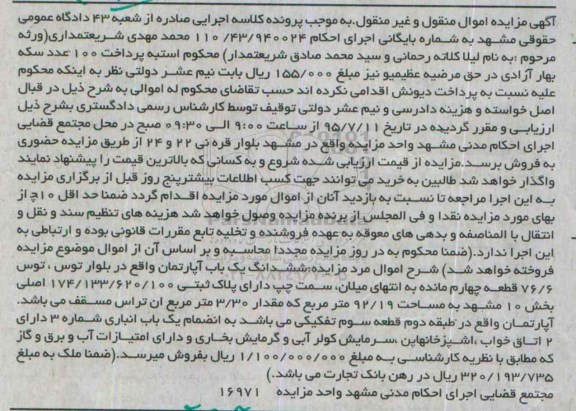 آگهی مزایده اموال منقول و غیر منقول.به موجب پرونده کلاسه اجرایی صادره از شعبه ۴۳ دادگاه عمومی
حقوقی مشهد به شماره بایگانی اجرای احکام ۴۳/۹۴۰۰۲۴/ ۱۱۰ محمد مهدی شریعتمداری(ورثه
مرحوم :به نام لیلا کلاته رحمانی و سید محمد صادق شریعتمدار) محکوم استبه پرداخت ۱۰۰ عدد سکه
بهار آزادی در حق مرضیه عظیمیو نیز مبلغ ۱۵۵/۰۰۰ ریال بابت نیم عشر دولتی نظر به اینکه محکوم
علیه نسبت به پرداخت دیونش اقدامی نکرده اند حسب تقاضای محکوم له اموالی به شرح ذیل در قبال
اصل خواسته و هزینه دادرسی و نیم عشر دولتی توقیف توسط کارشناس رسمی دادگستری بشرح ذیل
ارزیابی و مقرر گردیده در تاریخ ۹۵/۷/۱۱ از ساعت ۹:۰۰ الی ۰۹:۳۰ صبح در محل مجتمع قضایی
اجرای احکام مدنی مشهد واحد مزایده واقع در مشهد بلوار قره نی ۲۲ و ۲۴ از طریق مزایده حضوری
به فروش برسد.مزایده از قیمت ارزیابی شده شروع و به کسانی که بالاترین قیمت را پیشنهاد نمایند
واگذار خواهد شد طالبین به خرید می توانند جهت کسب اطلاعات بیشترپنج روز قبل از برگزاری مزایده
به این اجرا مراجعه تا نسبت به بازدید آنان از اموال مورد مزایده اقدام گردد ضمنا حد اقل ۱۰چ از
بهای مورد مزایده نقدا و فی المجلس از برنده مزایده وصول خواهد شد هزینه های تنظیم سند و نقل و
انتقال با المناصفه و بدهی های معوقه به عهده فروشنده و تخلیه تابع مقررات قانونی بوده و ارتباطی به
این اجرا ندارد.(ضمنا محکوم به در روز مزایده مجددا محاسبه و بر اساس آن از اموال موضوع مزایده
فروخته خواهد شد) شرح اموال مرد مزایده:ششدانگ یک باب آپارتمان واقع در بلوار توس ، توس
۷۶/۶ قطعه چهارم مانده به انتهای میلان، سمت چپ دارای پلاک ثبتی ۱۷۴/۱۳۳/۶۲۰/۱۰۰ اصلی
بخش ۱۰ مشهد به مساحت ۹۲/۱۹ متر مربع که مقدار ۳/۳۰ متر مربع ان تراس مسقف می باشد.
آپارتمان واقع در طبقه دوم قطعه سوم تفکیکی می باشد به انضمام یک باب انباری شماره ۳ دارای
۲ اتاق خواب ،اشپزخانهاپن ،سرمایش کولر آبی و گرمایش بخاری و دارای امتیازات آب و برق و گاز
که مطابق با نظریه کارشناسی به مبلغ ۱/۱۰۰/۰۰۰/۰۰۰ ریال بفروش میرسد.(ضمنا ملک به مبلغ
۳۲۰/۱۹۳/۷۳۵ ریال در رهن بانک تجارت می باشد.)
مجتمع قضایی اجرای احکام مدنی مشهد واحد مزایده ۱۶۹۷۱